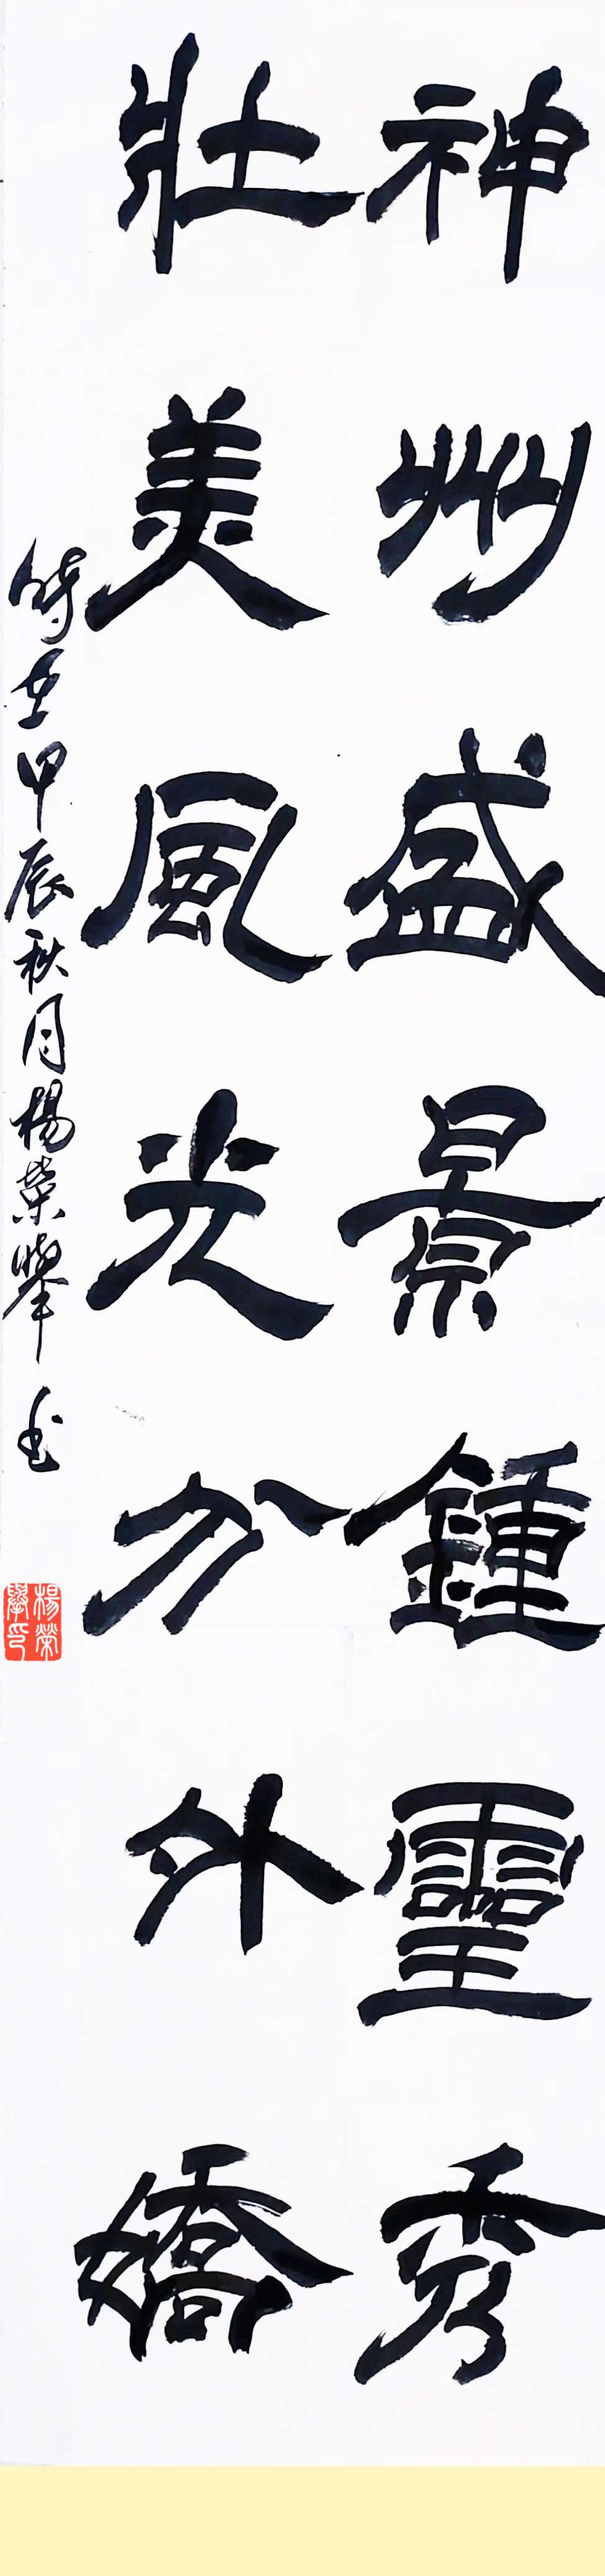 神州盛景鍾靈秀
壯美風光分外嬌
時在甲辰秋月楊榮舉書
楊榮舉印